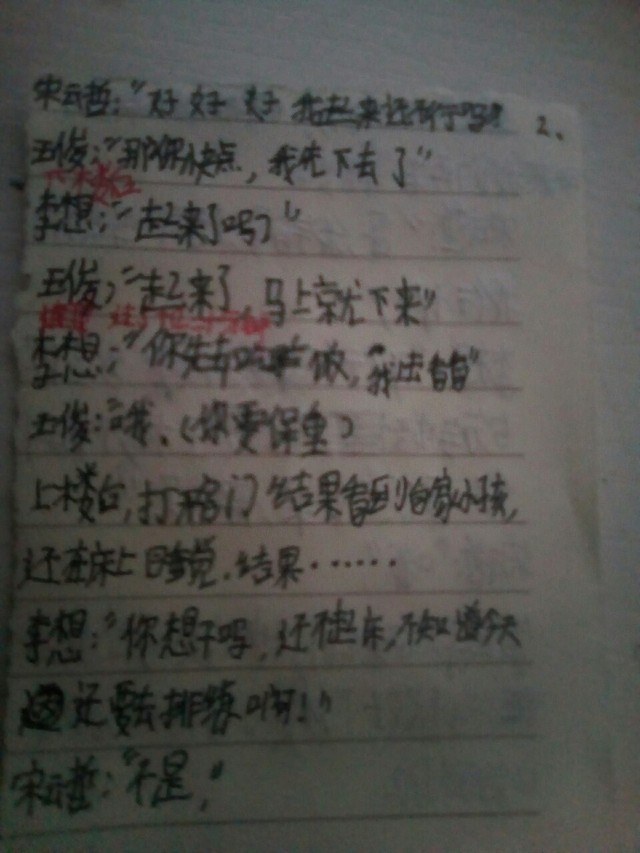 宋云哲:"好好好我起来还不行吗? 2、
王俊:"那你快点,我先下去了"
下楼
李想:"起来了吗?"
王俊:"起来了,马上就下来"
李想:"你先去吃饭,我去看看"
王俊:"哦、(你要保重)
上楼后,打开门结果看到自家小孩,
还在床上睡觉.结果······
李想:"你想干吗,还不起床,不知道今天
还要去排练啊!"
宋云哲:"不是,"